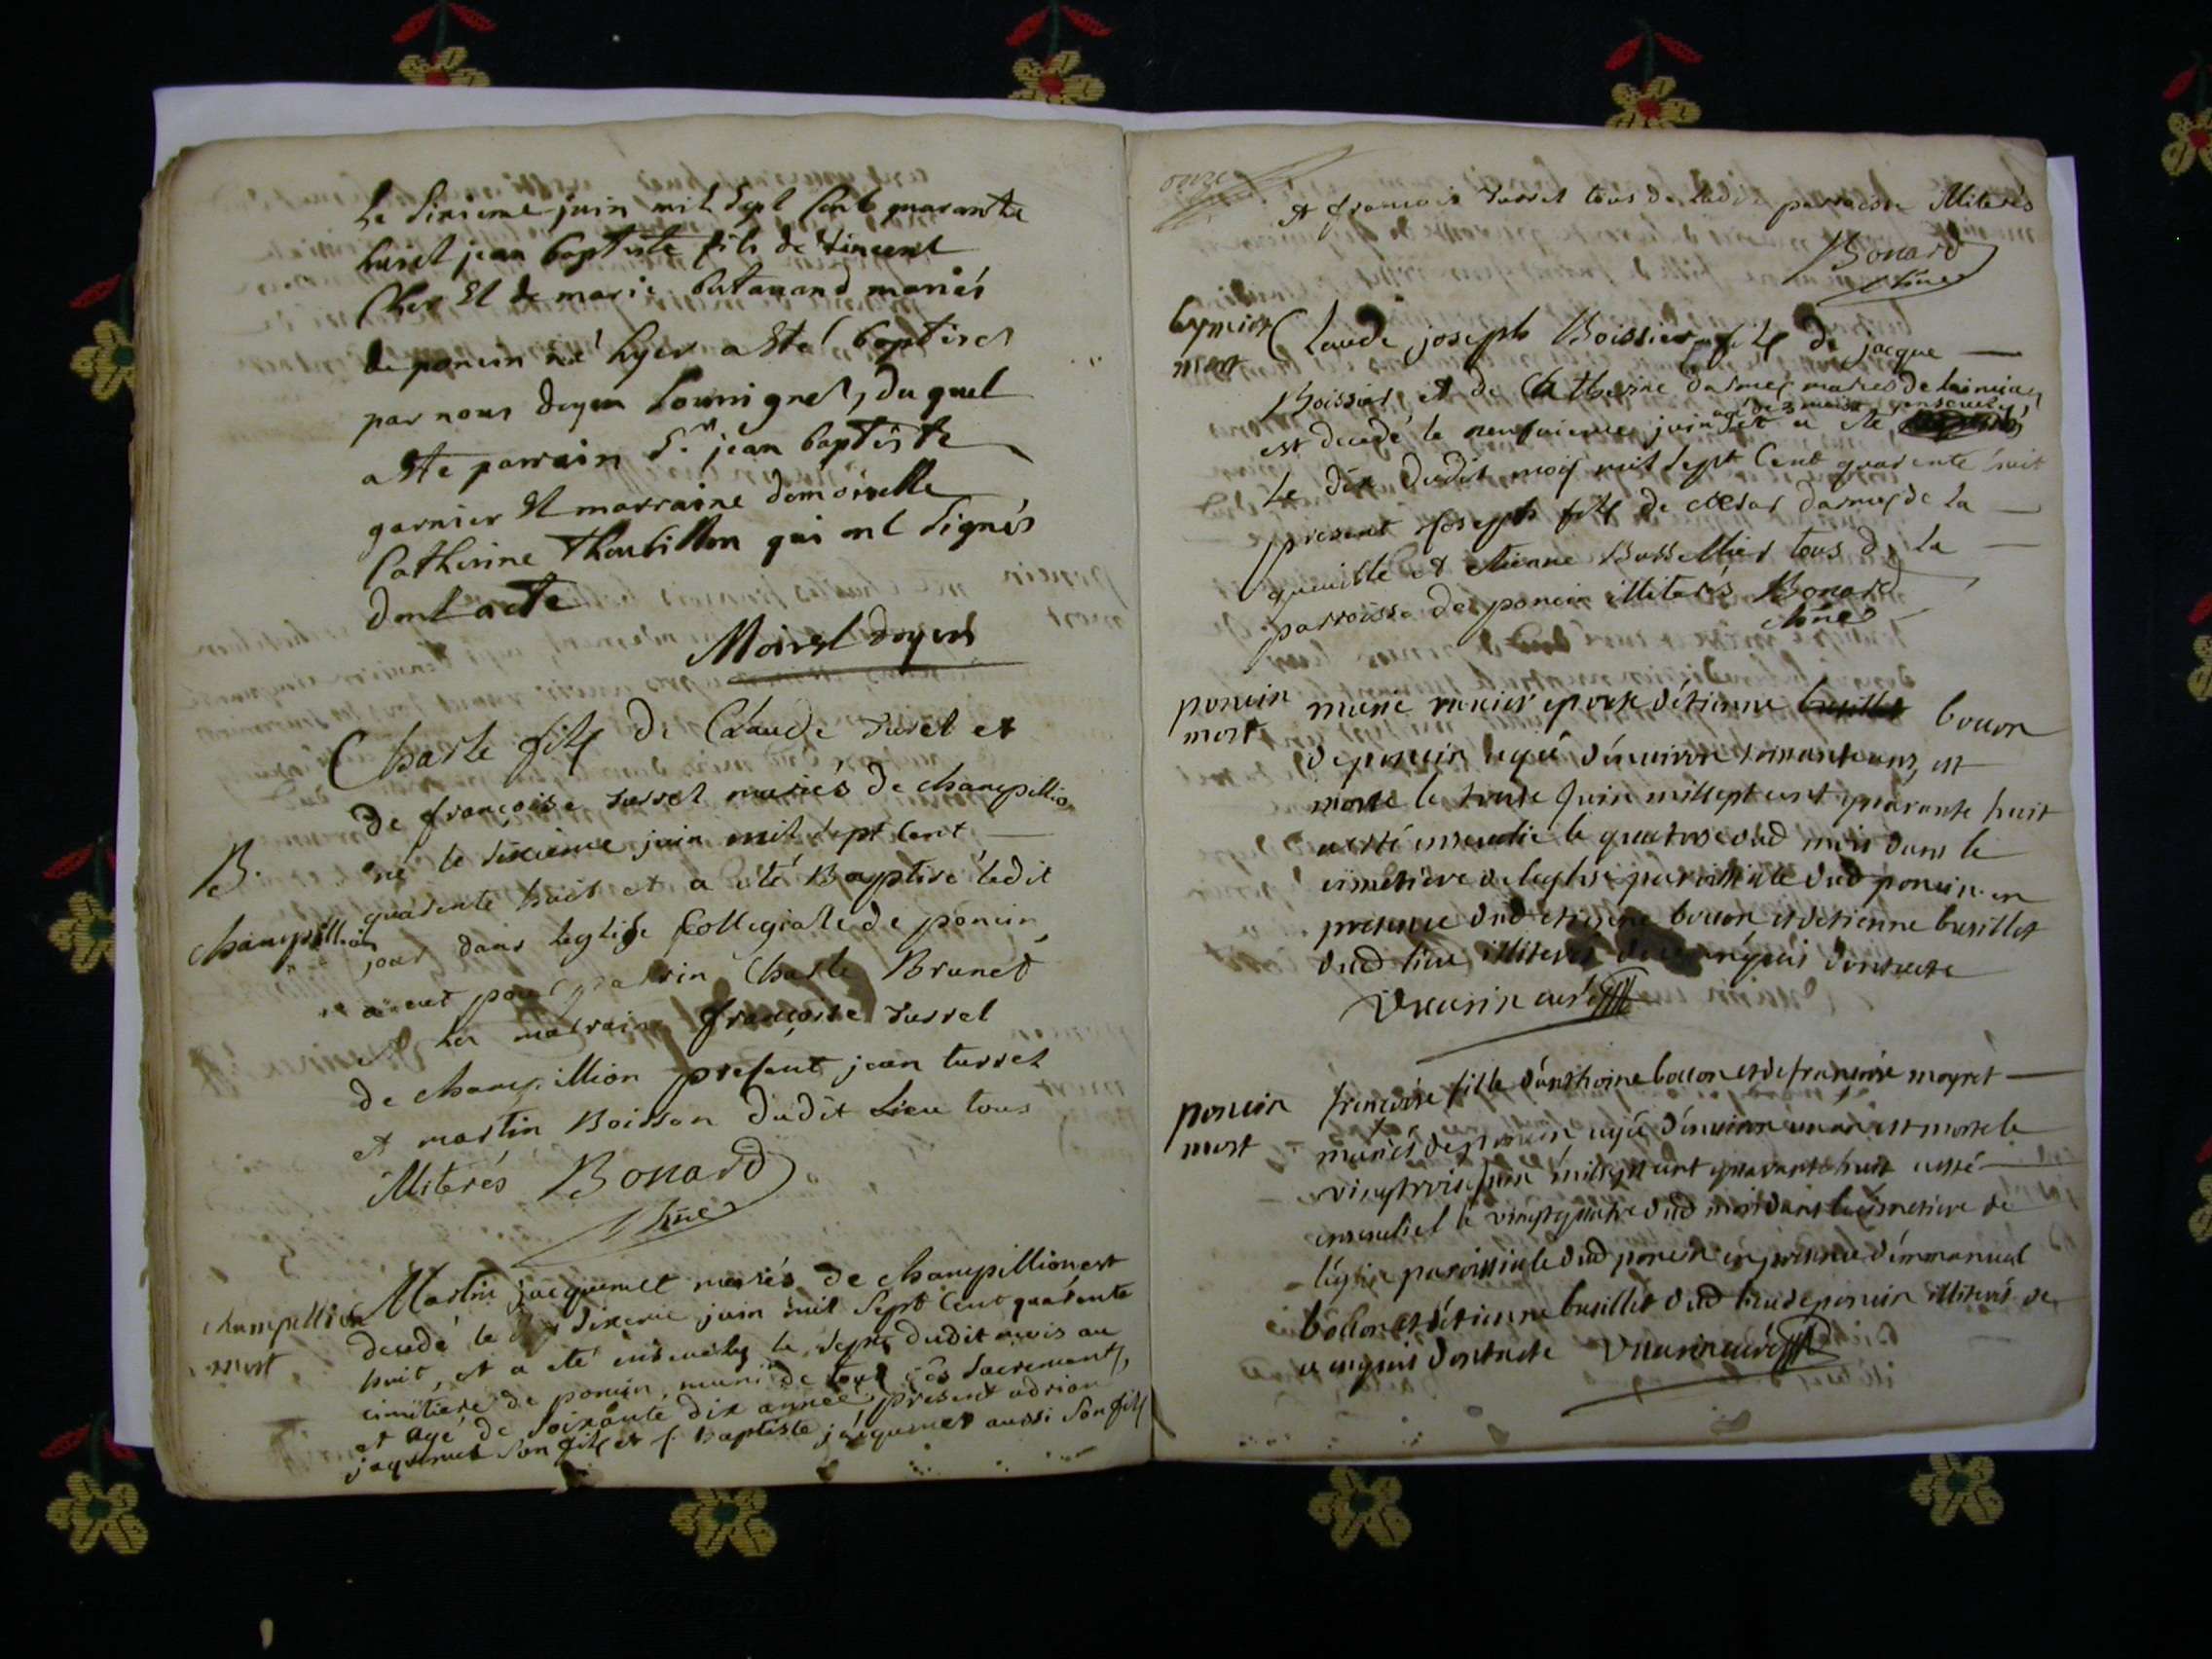 Le Sixieme juin mil Sept Cent quarante
huict jean baptiste fils de Vincent
Cher Et de marie mariés
de poncin né hyer a Esté baptisé
par nous doyen Soussigné, du quel
a Este parrain Sr. jean baptiste
garnier Et marraine demoiselle
Catherine Thoubillon qui ont Signés
dont acte
Moirel doyen
Charle fils de Claude turel et
de françoise turrel mariés de champillion
B.
né le sixieme juin mil sept cent
quarente huit et a eté Baptisé ledit
champillion
jour dans leglise Collegiale de poncin,
aient pour parrin Charle Brunet
et ha marraine françoise turrel
de champillion present jean turrel
et martin Boisson dudit Lieu tous
illiterés Bonard
Martin jacquemet mariés de champillion est
champillion
decedé le sixieme juin mil sept cent quarente
mort
huit, et a eté ensevely le sept dudit mois au
cimitiere de poncin, muni de tous ces sacrements,
et agé de soixante dix année, present adrian
jaquemet son fils et j. baptiste jacquemet aussi son fils
onze
et francois turrel tous de ladte parroisse illiterés
Bonard
Claude joseph Boissier fils de jacque
mort
Boissier et de Catherine mariés de
est decedé le neufvieme juin agé de 3 mois et a ete ensevely
Le dix dudit mois mil sept Cent quarente huit
present joseph fils de de la
et etienne tous de la
parroisse de poncin illiterés Bonard
poncin
marie epouse d'étienne bocon
mort
de poncin agée d'environ soixante ans, est
morte le treize Juin mil sept cent quarante huit
a esté ensevelie le quatorze dud mois dans le
cimetiere de leglise paroissiale dud poncin en
presence dud etienne bocon, et d'etienne busillet
dud lieu illiterés de ce enquis dont acte
Vuarin curé
poncin
françoise fille d'anthoine bocon et de françoise mayret
mort
mariés de poncin, agée d'environ un an est morte le
vingt trois Juin mil sept cent quarante huit a esté
ensevelie le vingt quatre dud mois dans le cimetiere de
léglise paroissiale dud poncin en presence d'emmanuel
bocon et d'étienne busillet dud lieu de poncin illiterés de
ce enquis dont acte Vuarin curé